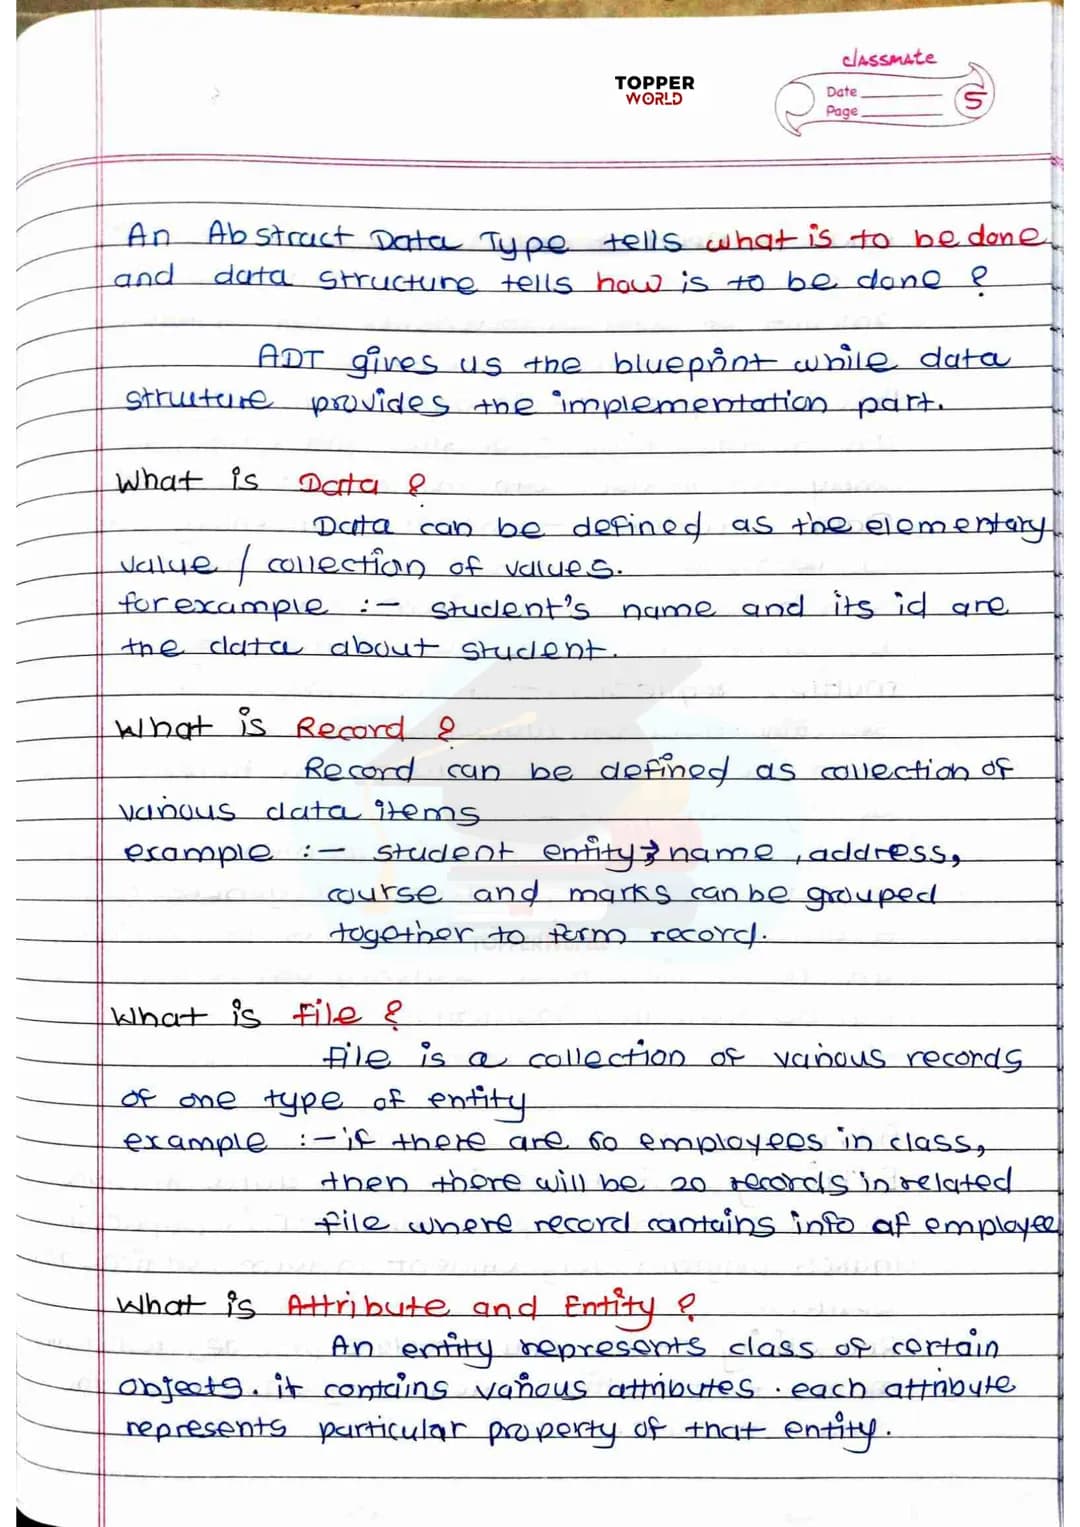 classmate
TOPPER
WORLD
Date
Page
5
An Abstract Data Type tells what is to be done
and data structure tells how is to be done ?
ADT gives us the blueprint while data
structure provides the implementation part.
What is Data ?
Data can be defined as the elementary
value / collection of values.
for example :- student's name and its id are
the data about student.
What is Record ?
Record can be defined as collection of
various data items
example :- student entity name, address,
course and marks can be grouped
together to form record.
What is File ?
File is a collection of various records
of one type of entity
example :- if there are 60 employees in class,
then there will be 20 records in related
file where record contains info of employee
What is Attribute and Entity ?
An entity represents class of certain
objects. it contains various attributes. each attribute
represents particular property of that entity.